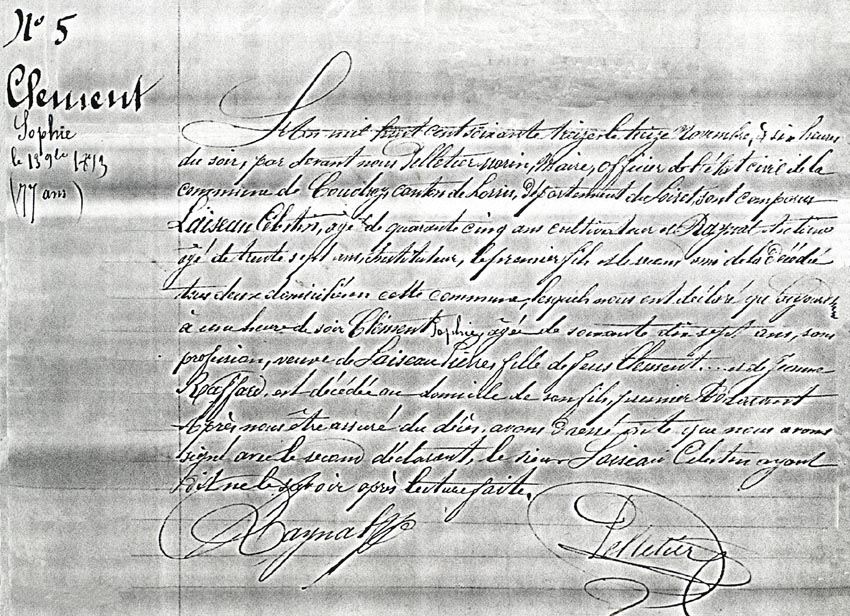 N° 5
Clement
Sophie
le 13 9bre 1873
(77 ans)
L'an mil huit cent soixante treize le treize Novembre, à six heures
du soir, par devant nous Pelletier Maire, officier de l'état civil de la
commune de Coudroy canton de Lorris, département du Loiret, sont comparus
Loiseau Célestin, âgé de quarante cinq ans cultivateur et Raynal
âgé de trente sept ans, instituteur, le premier fils et le second ami de la décédée
tous deux domiciliés en cette commune, lesquels nous ont déclaré que
à une heure de soir Clément Sophie, âgée de soixante dix sept ans, sans
profession, veuve de Loiseau Pierre, fille de feus Clement .... et de Jeanne
Raffard, est décédée au domicile de son fils, premier déclarant
Après nous être assuré du décès, avons dressé acte que nous avons
signé avec le second déclarant, le sieur Loiseau Célestin ayant
dit ne le savoir après lecture faite.
Raynal
Pelletier